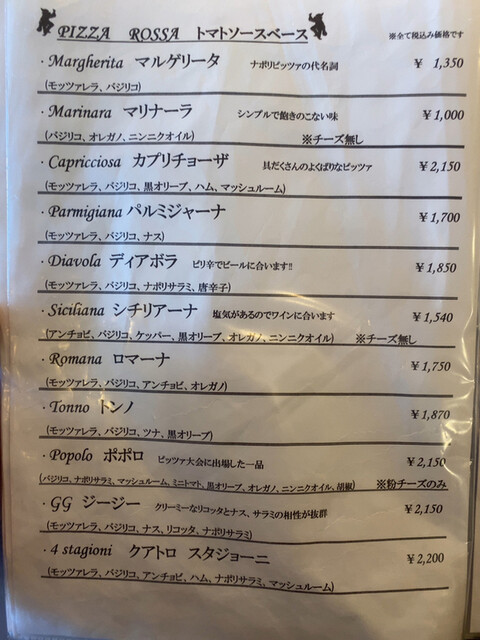 PIZZA ROSSA トマトソースベース
※全て税込み価格です
・Margherita マルゲリータ ナポリピッツァの代名詞 ￥ 1,350
(モッツァレラ、バジリコ)
・Marinara マリナーラ シンプルで飽きのこない味 ￥1,000
(バジリコ、オレガノ、ニンニクオイル) ※チーズ無し
・Capricciosa カプリチョーザ 具だくさんのよくばりなピッツァ ￥2,150
(モッツァレラ、バジリコ、黒オリーブ、ハム、マッシュルーム)
・Parmigiana パルミジャーナ ￥1,700
(モッツァレラ、バジリコ、ナス)
・Diavola ディアボラ ピリ辛でビールに合います!! ￥1,850
(モッツァレラ、バジリコ、ナポリサラミ、唐辛子)
・Siciliana シチリアーナ 塩気があるのでワインに合います ￥1,540
(アンチョビ、バジリコ、ケッパー、黒オリーブ、オレガノ、ニンニクオイル) ※チーズ無し
・Romana ロマーナ ￥1,750
(モッツァレラ、バジリコ、アンチョビ、オレガノ)
・Tonno トンノ ￥1,870
(モッツァレラ、バジリコ、ツナ、黒オリーブ)
・Popolo ポポロ ピッツァ大会に出場した一品 ￥2,150
(バジリコ、ナポリサラミ、マッシュルーム、ミニトマト、黒オリーブ、オレガノ、ニンニクオイル、胡椒) ※粉チーズのみ
・GG ジージー クリーミーなリコッタとナス、サラミの相性が抜群 ￥2,150
(モッツァレラ、バジリコ、ナス、リコッタ、ナポリサラミ)
・4 stagioni クアトロ スタジョーニ ￥2,200
(モッツァレラ、バジリコ、アンチョビ、ハム、ナポリサラミ、マッシュルーム)